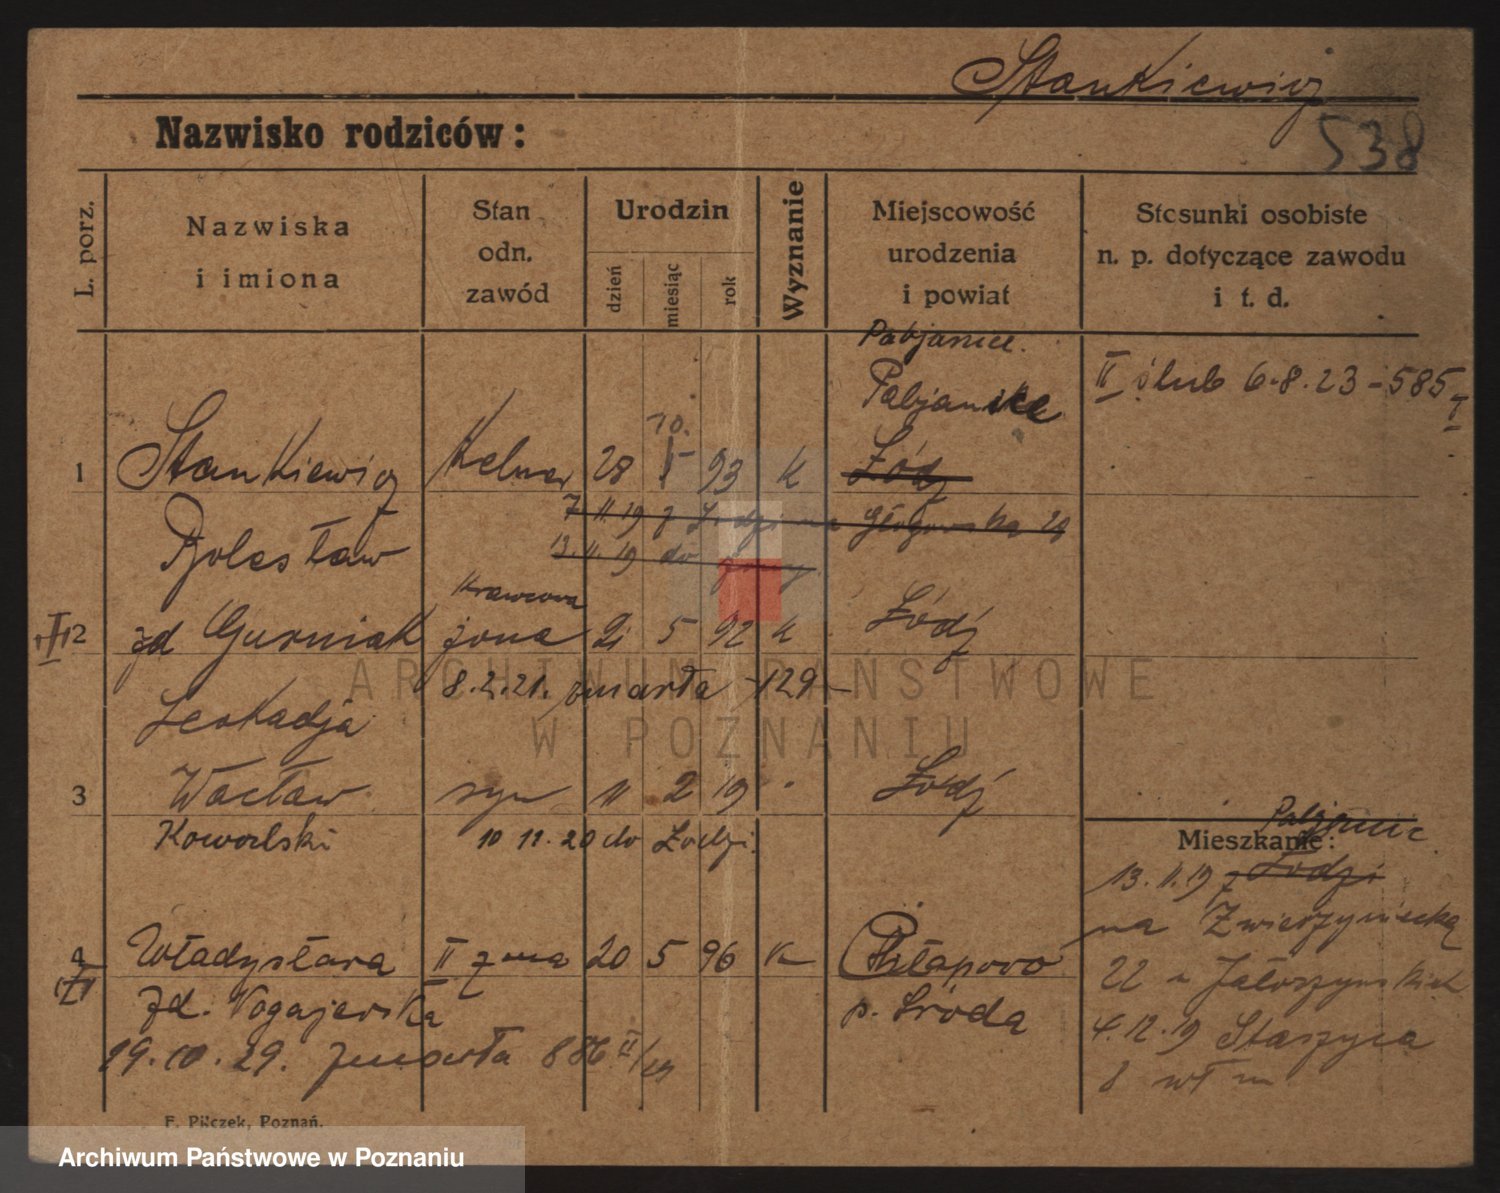 Stankiewicz
538
Nazwisko rodziców:
L. porz.
Nazwiska
i imiona
Stan
odn.
zawód
Urodzin
dzień
miesiąc
rok
Wyznanie
Miejscowość
urodzenia
i powiat
Stosunki osobiste
n. p. dotyczące zawodu
i t. d.
Pabjanice.
Pabjanice
II ślub 6.8.23 - 585 I
10.
1 Stankiewicz Kelner 28 93 K Łódź
Bolesław
7 11. 19 z Łodzi na Głogowska
13. 11. 19 do
Krawcowa
II 2 zd Gurniak żona 21 5 92 K Łódź
8.2.21. zmarła -129-
Leokadja
3 Wacław syn 11 2 19 Łódź
Kowalski 10 11. 20 do Łodzi
Pabjanic
Mieszkanie:
13. 11. 19 z Łodzi
na Zwierzyniecką
22 u Jałoszyńskich
4. 12. 19 Staszyca
8
4 Władysława II żona 20 5 96 K Chłapowo
zd. p. Środa
19. 10. 29. zmarła 886
F. Pilczek, Poznań.
ARCHIWUM PAŃSTWOWE
W POZNANIU
Archiwum Państwowe w Poznaniu